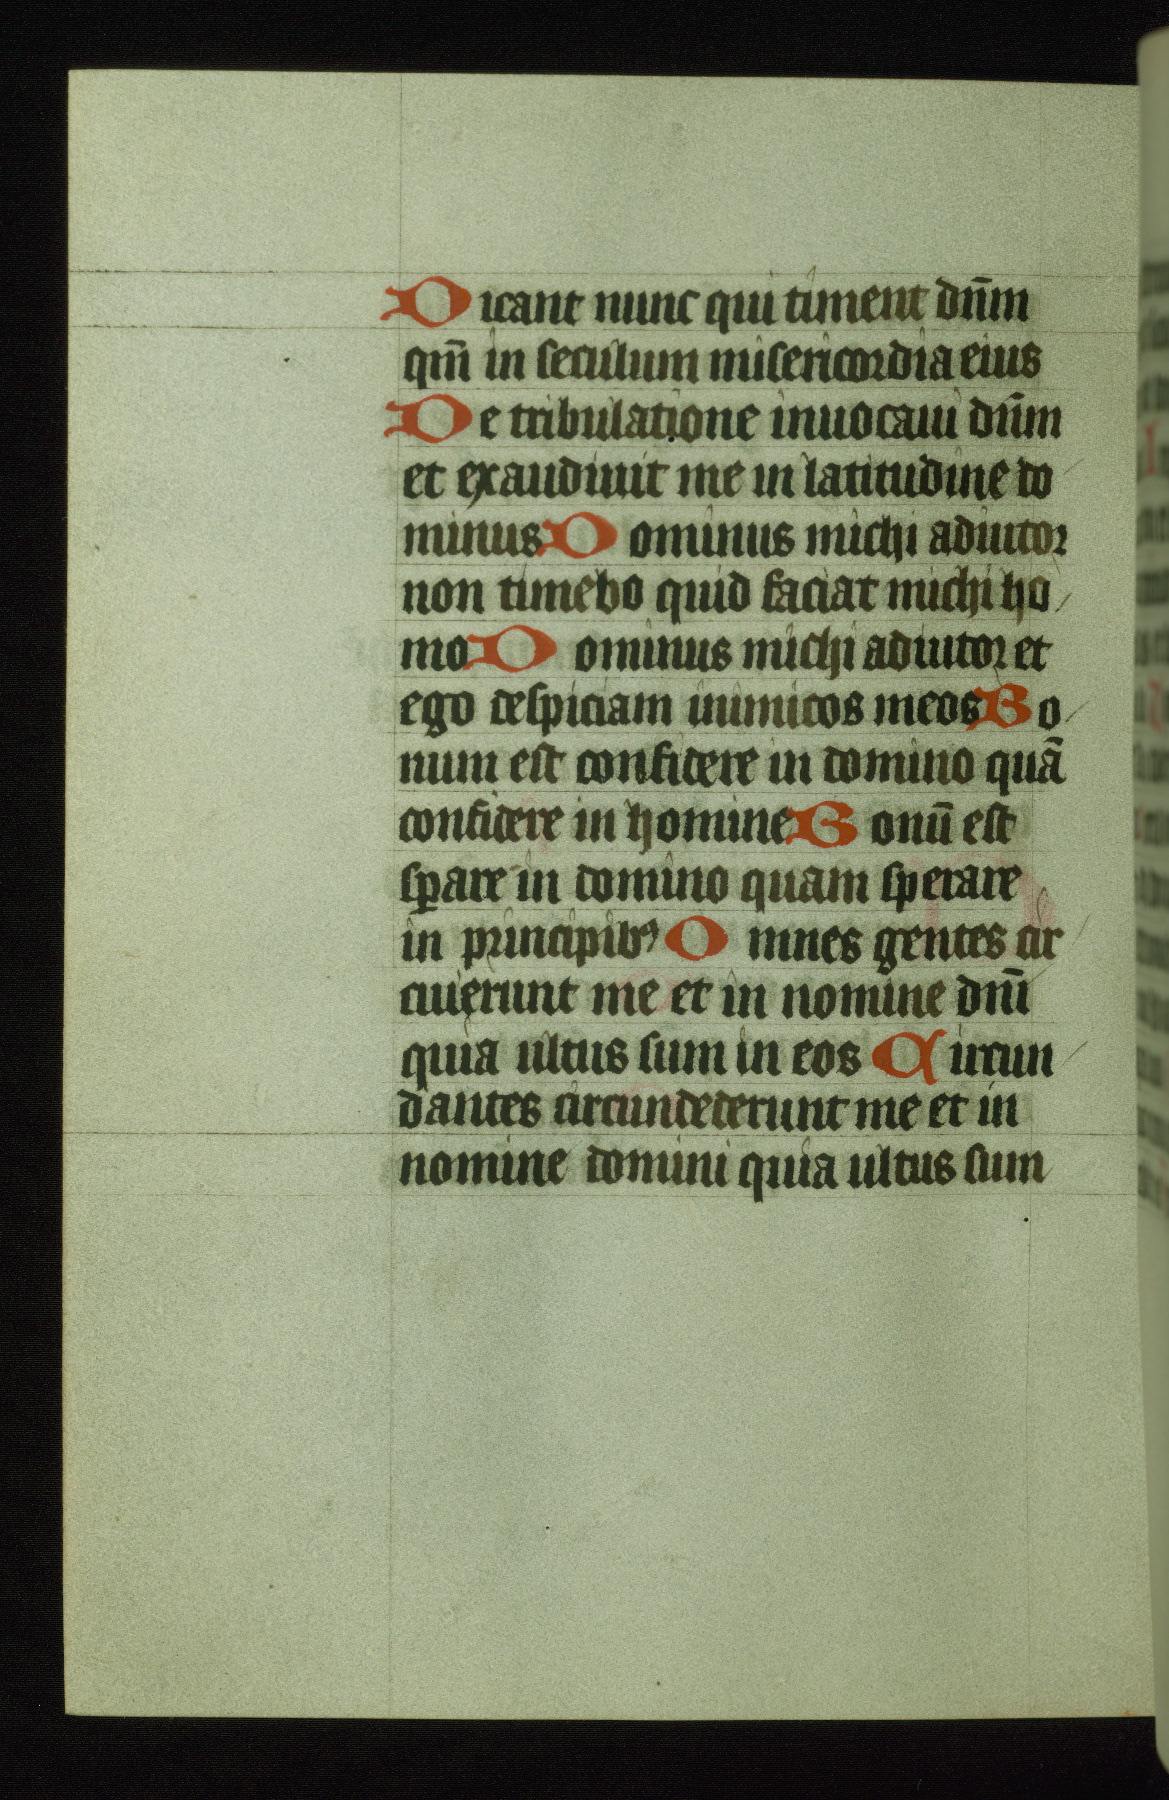 Dicant nunc qui timent dn̄m
qm̄ in seculum misericordia eius
De tribulatione inuocaui dn̄m
et exaudiuit me in latitudine do
minus Dominus michi adiutor
non timebo quid faciat michi ho
mo Dominus michi adiutor et
ego despiciam inimicos meos Bo
num est confidere in domino quā
confidere in homine Bonū est
sꝑare in domino quam sperare
in principibꝰ Omnes gentes cir
cuierunt me et in nomine dn̄i
quia ultus sum in eos Circun
dantes circundederunt me et in
nomine domini quia ultus sum